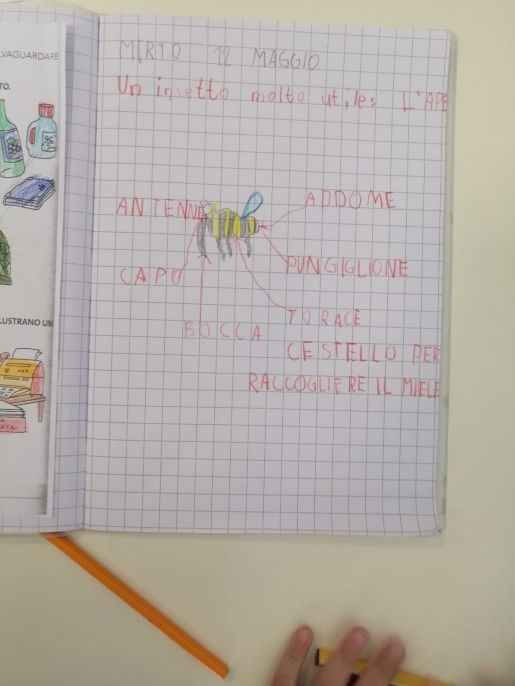 LVAGUARDARE
TO.
LUSTRANO UN
MIRTO 12 MAGGIO
Un insetto molto utile: L'APE
ANTENNE
ADDOME
CAPO
PUNGIGLIONE
BOCCA
TORACE
CESTELLO PER
RACCOGLIERE IL MIELE